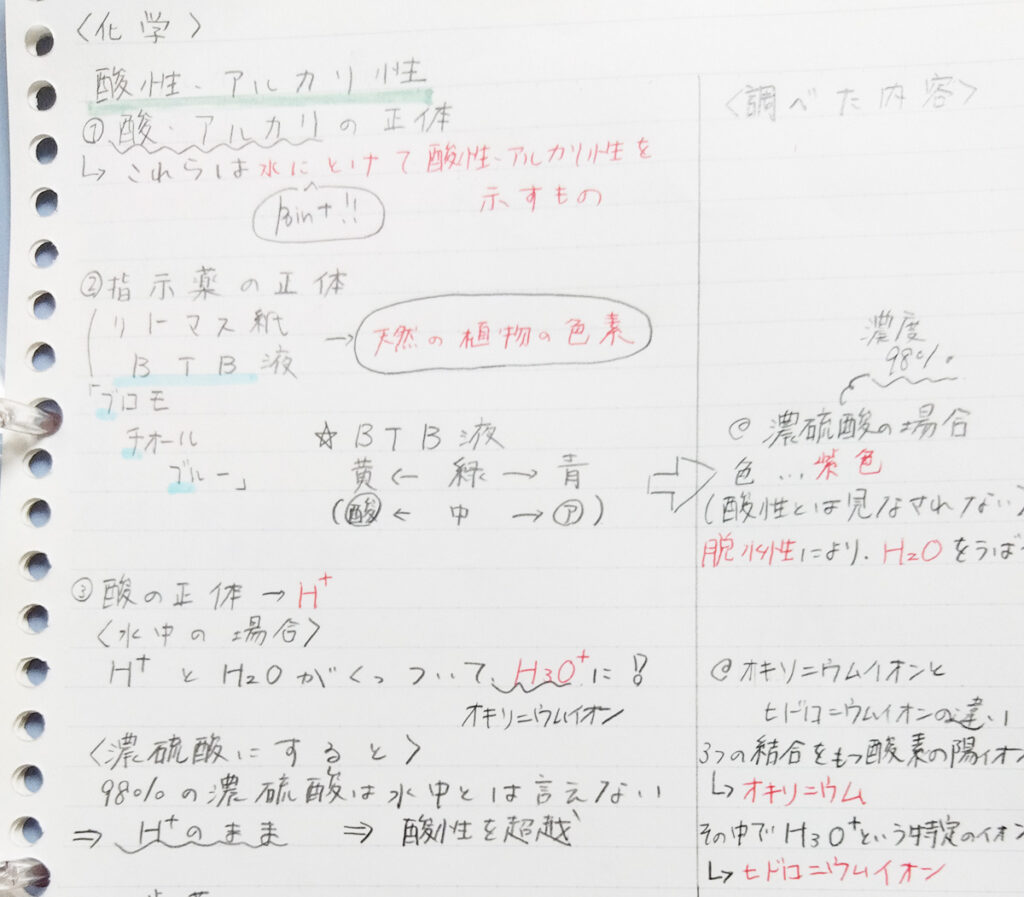 〈化学〉
酸性・アルカリ性
① 酸・アルカリの正体
↳ これらは水にとけて酸性・アルカリ性を
示すもの
Point!!
② 指示薬の正体
リトマス紙
BTB液
→ 天然の植物の色素
「ブロモ
チオール
ブルー」
☆ BTB液
黄 ← 緑 → 青
(酸 ← 中 → ア)
③ 酸の正体 → H⁺
〈水中の場合〉
H⁺ と H₂O がくっついて、H₃O⁺ に!?
オキソニウムイオン
〈濃硫酸にすると〉
98%の濃硫酸は水中とは言えない
⇒ H⁺のまま ⇒ 酸性を超越
〈調べた内容〉
濃度
98%
@ 濃硫酸の場合
色 … 紫色
(酸性とは見なされない)
脱水性により、H₂Oをうば
@ オキソニウムイオンと
ヒドロニウムイオンの違い
3つの結合をもつ酸素の陽イオン
↳ オキソニウム
その中でH₃O⁺という特定のイオン
↳ ヒドロニウムイオン